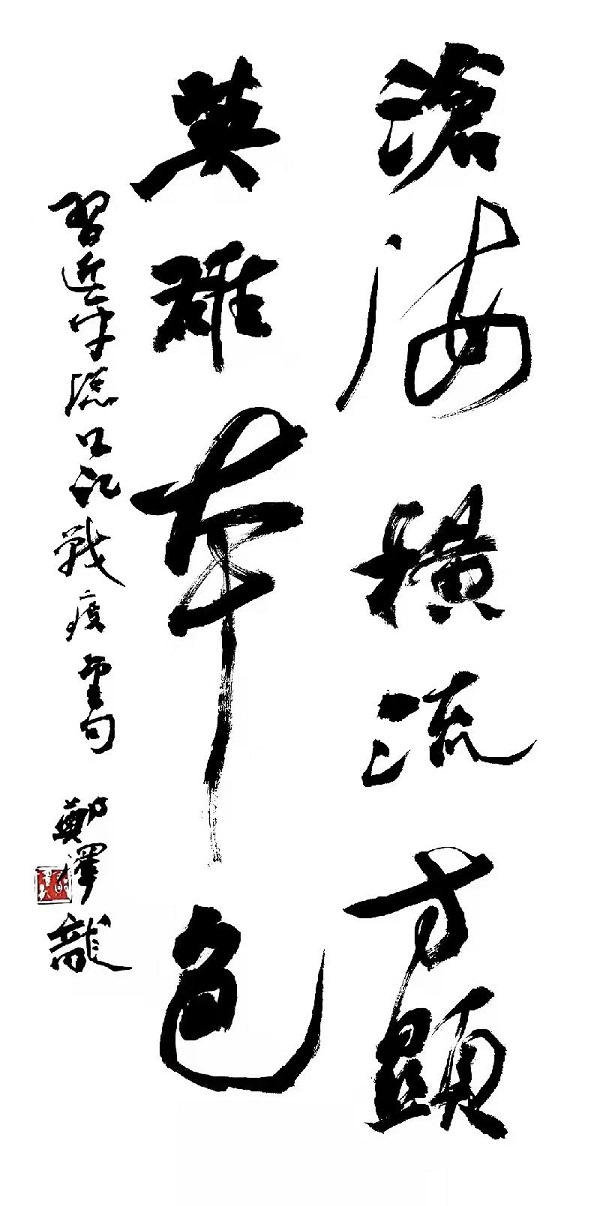 滄海橫流方顯
英雄本色
習近平總書記戰疫句 鄭澤龍